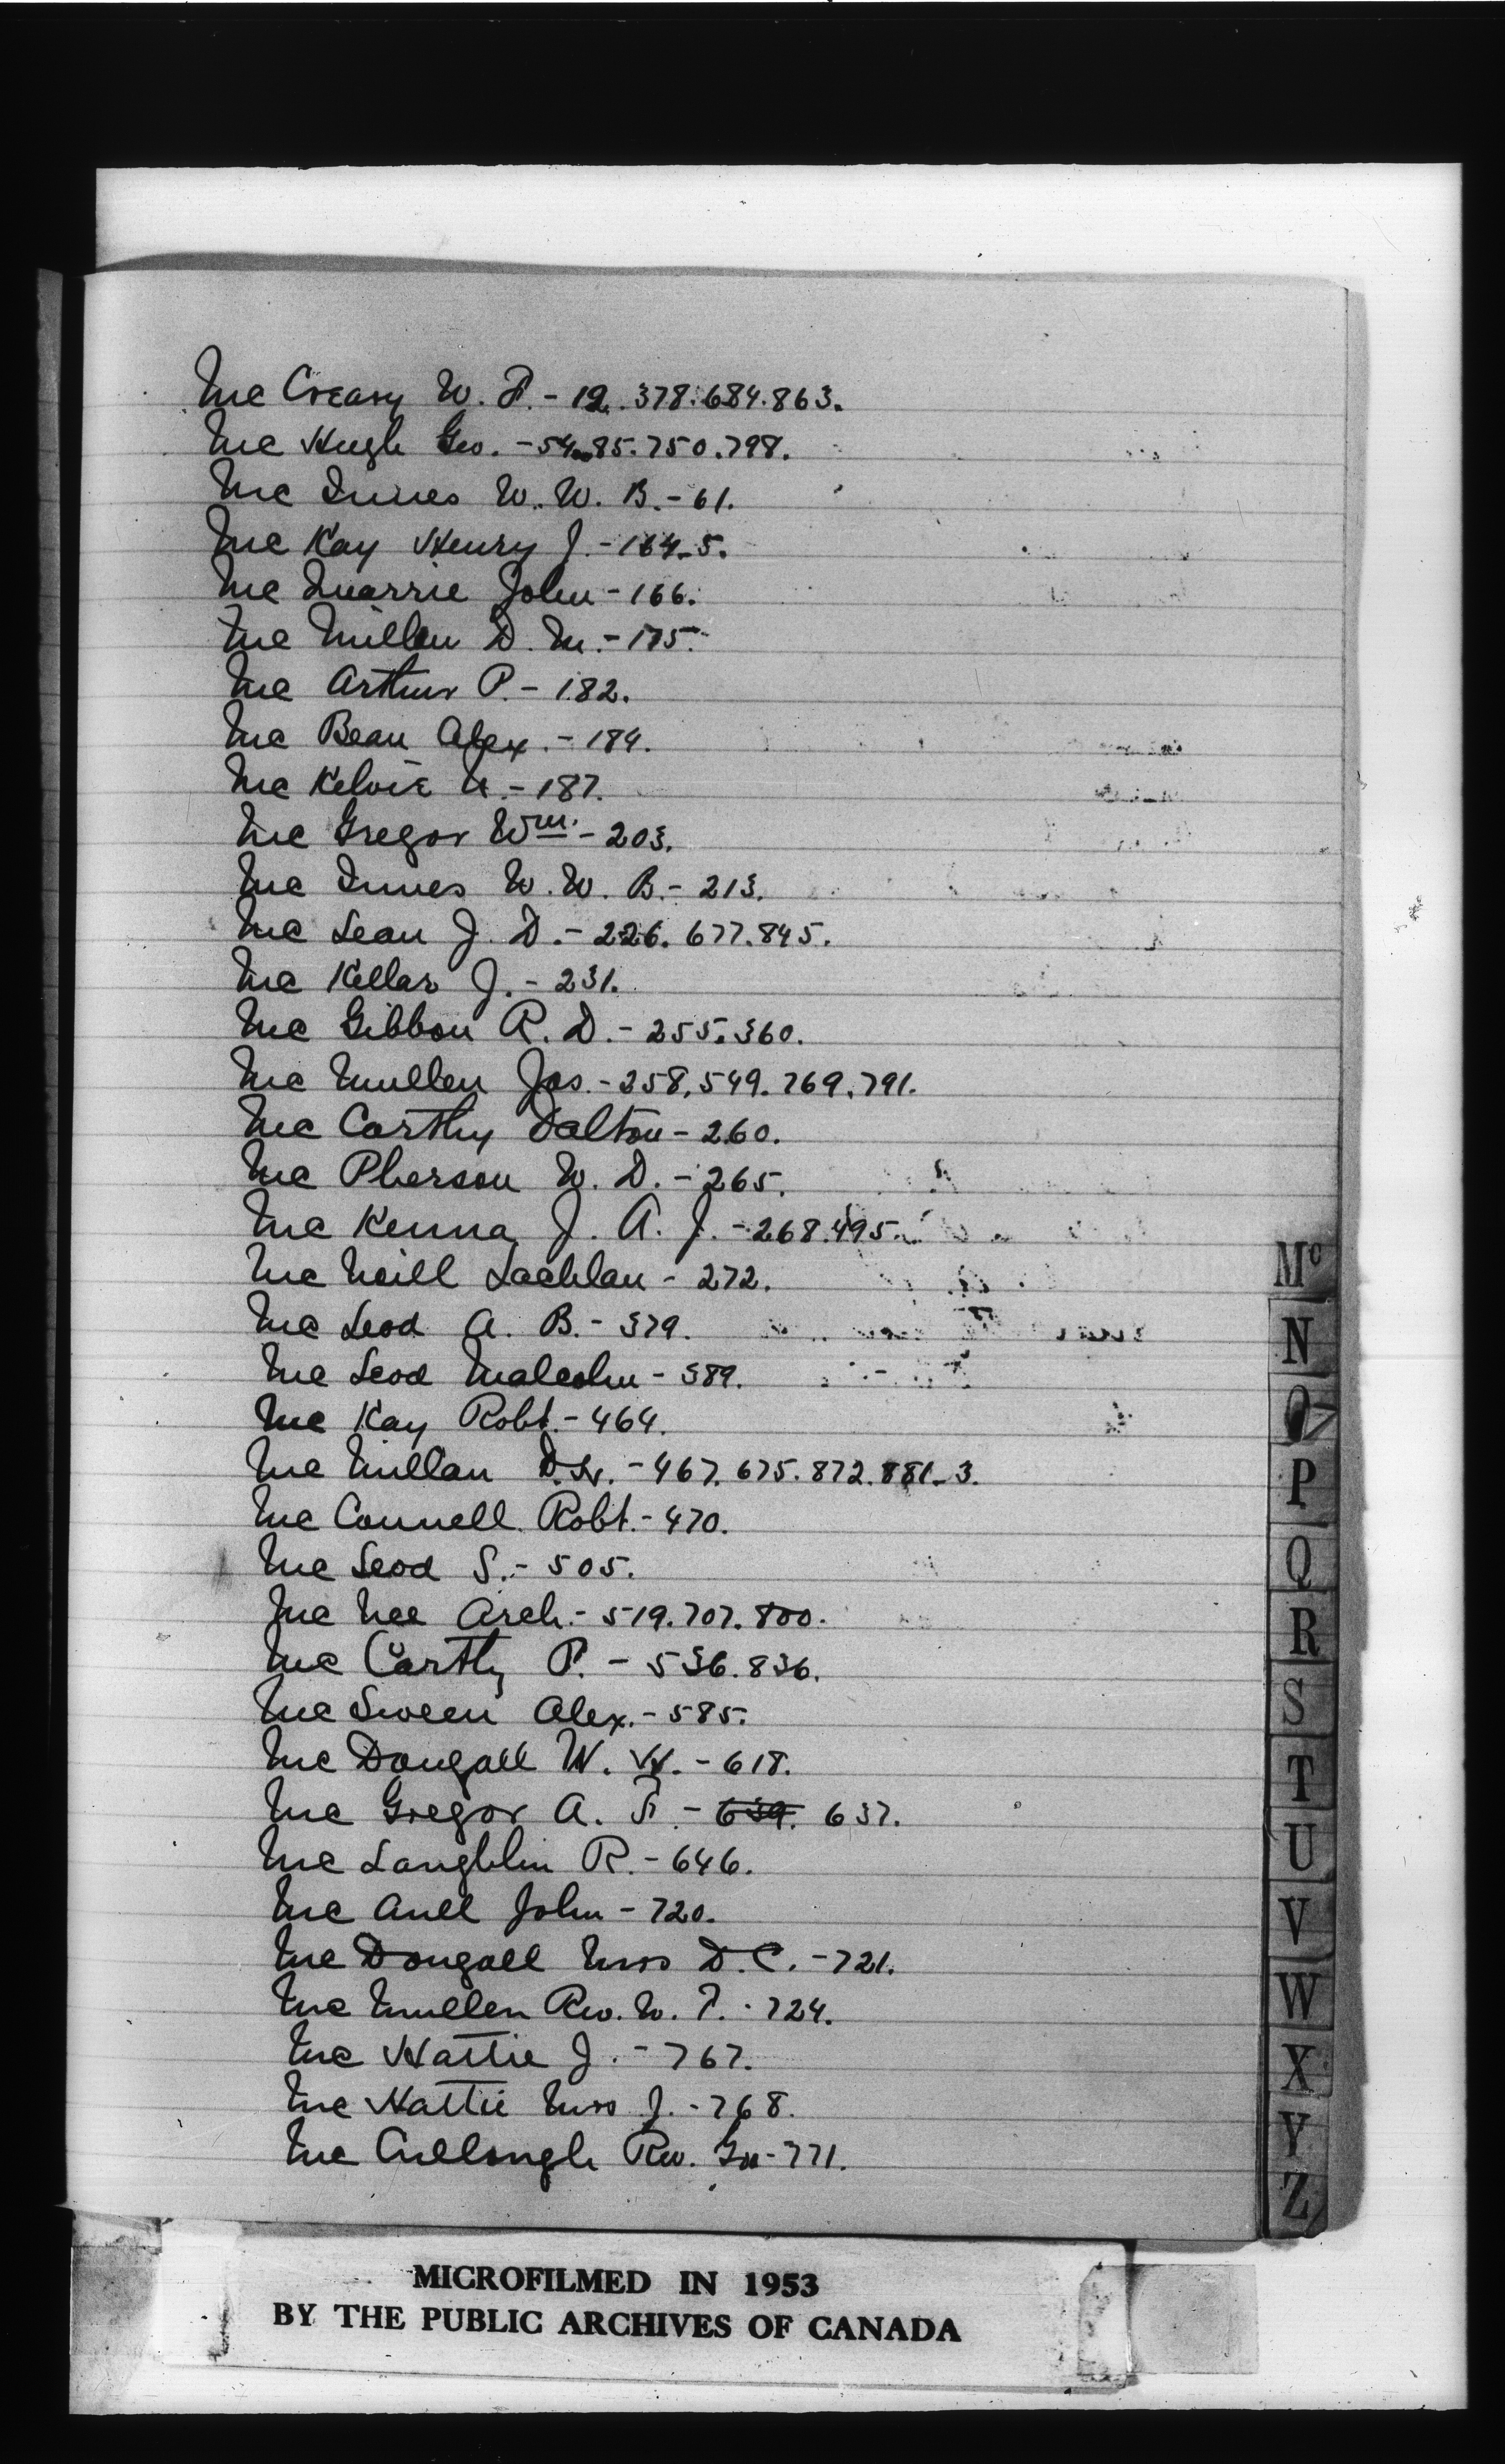 Mc Creary W. F. - 12. 378. 684. 863.
Mc Hugh Geo. - 54. 85. 750. 798.
Mc Innes W. W. B. - 61.
Mc Kay Henry J. - 164-5.
Mc Quarrie John - 166.
Mc Millan D. M. - 175.
Mc Arthur P. - 182.
Mc Bean Alex. - 184.
Mc Kelvie - 187.
Mc Gregor Wm. - 203.
Mc Innes W. W. B. - 213.
Mc Lean J. D. - 226. 677. 845.
Mc Kellar J. - 231.
Mc Gibbon R. D. - 255. 360.
Mc Mullen Jas. - 258. 549. 769. 791.
Mc Carthy Dalton - 260.
Mc Pherson W. D. - 265.
Mc Kenna J. A. J. - 268. 495.
Mc Neill Lachlan - 272.
Mc Leod A. B. - 379.
Mc Leod Malcolm - 389.
Mc Kay Robt. - 464.
Mc Millan D. H. - 467. 675. 872. 881-3.
Mc Connell Robt. - 470.
Mc Leod S. - 505.
Mc Nee Arch. - 519. 707. 800.
Mc Carthy P. - 536. 836.
Mc Sween Alex. - 585.
Mc Dougall W. W. - 618.
Mc Gregor A. F. - 639. 637.
Mc Laughlin R. - 646.
Mc Aull John - 720.
Mc Dougall Mrs D. C. - 721.
Mc Mullen Rev. W. T. - 724.
Mc Hattie J. - 767.
Mc Hattie Mrs J. - 768.
Mc Cullough Rev. - 771.
Mc
N
O
P
Q
R
S
T
U
V
W
X
Y
Z
MICROFILMED IN 1953
BY THE PUBLIC ARCHIVES OF CANADA